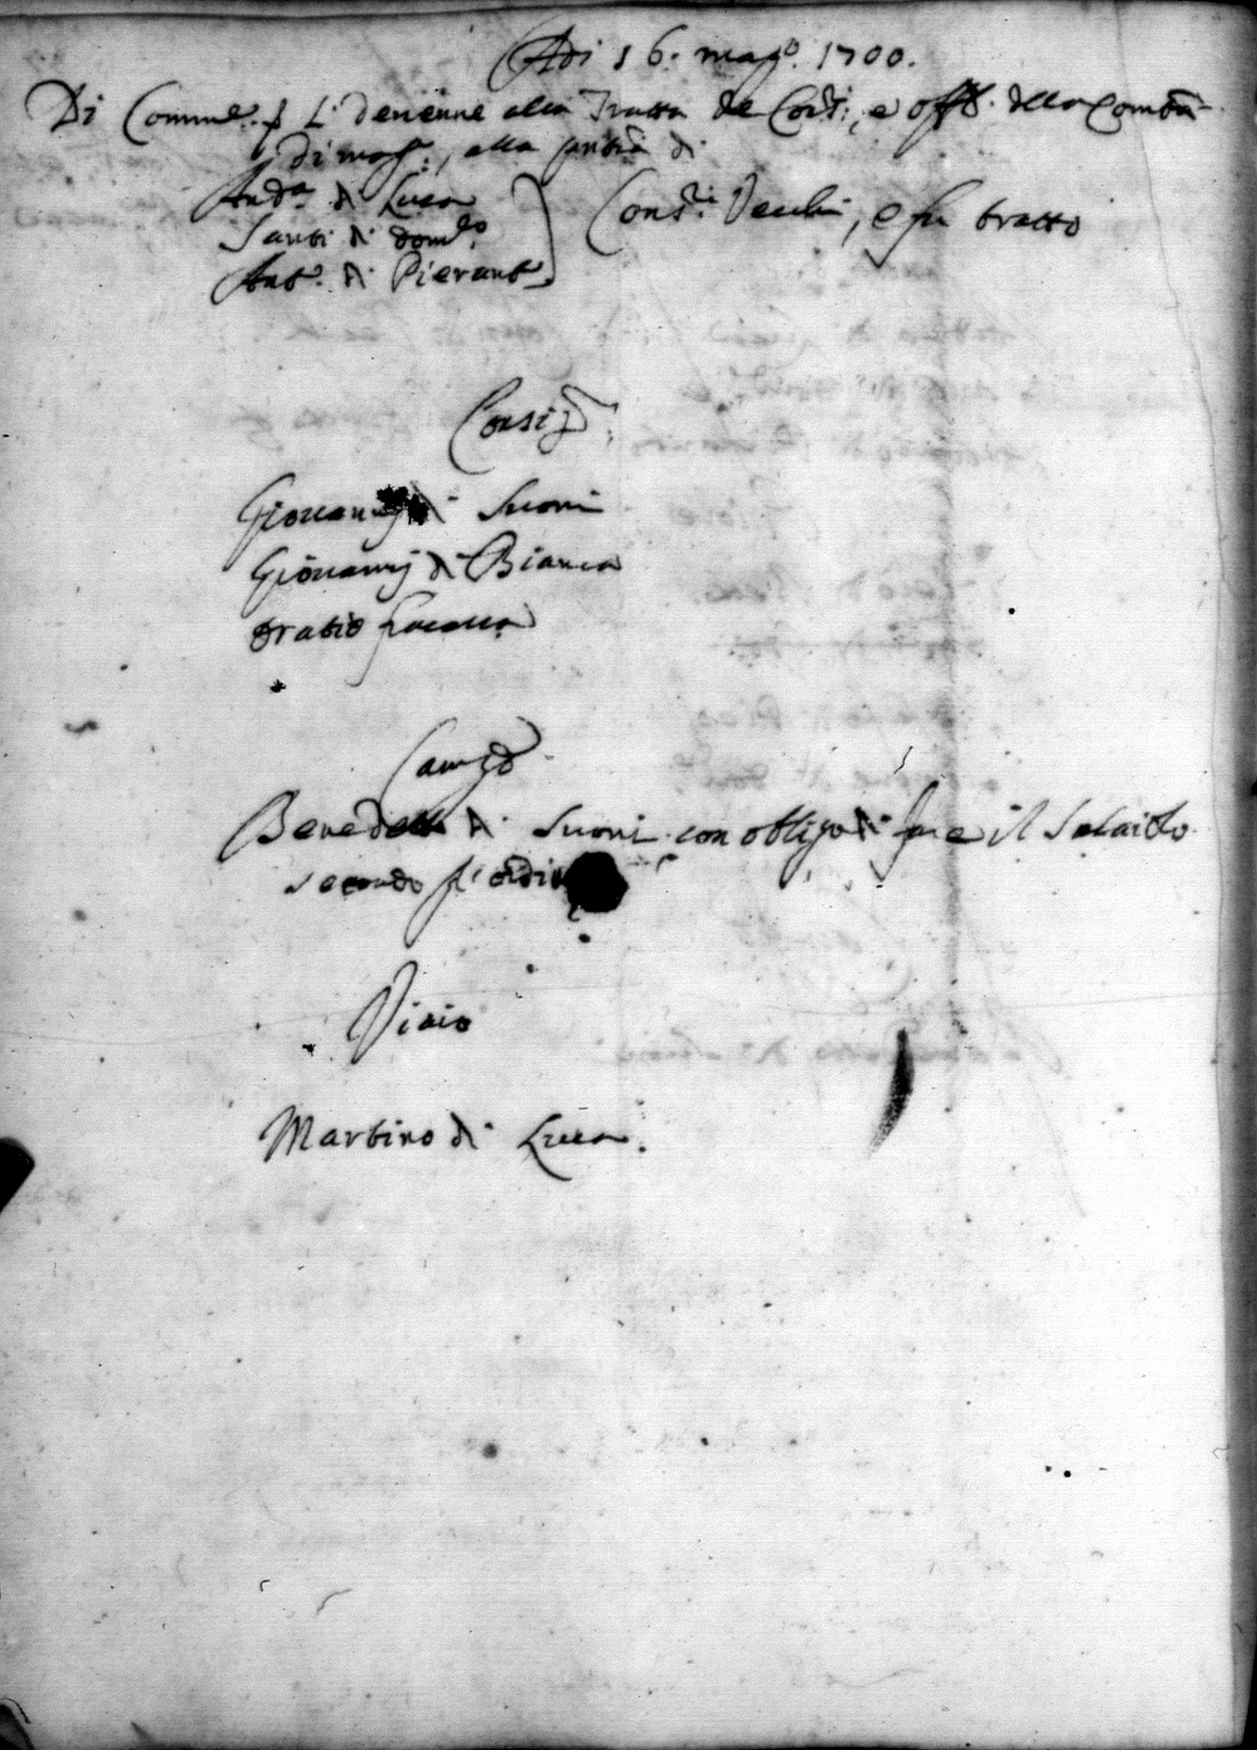 Adi 16. mag.o 1700.
Di Comm.e si devenne alla Tratta de Cons.ri, e off.li della Comtà
di mag.o, alla presentia di
And.a di Luca
Santi di Dom.co
Ant.o di Pierant.o
Cons.ri Vecchi, e fu tratto
Consig.ri
Giovannj di Suoni
Giovannj di Bianca
Oratio
Camg.o
Benedetto di Suoni con obligo di fare il Salaiolo
secondo gl'ordini
Viaio
Martino di Luca.